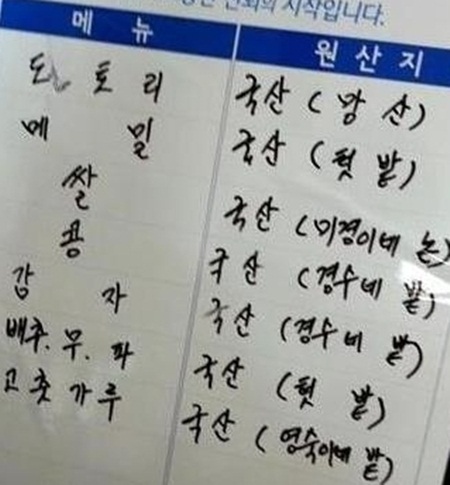 의 시작입니다.
메뉴 원산지
도토리 국산 (앞산)
메밀 국산 (텃밭)
쌀 국산 (미경이네 논)
콩 국산 (경수네 밭)
감자 국산 (경수네 밭)
배추. 무. 파 국산 (텃밭)
고춧가루 국산 (영숙이네 밭)